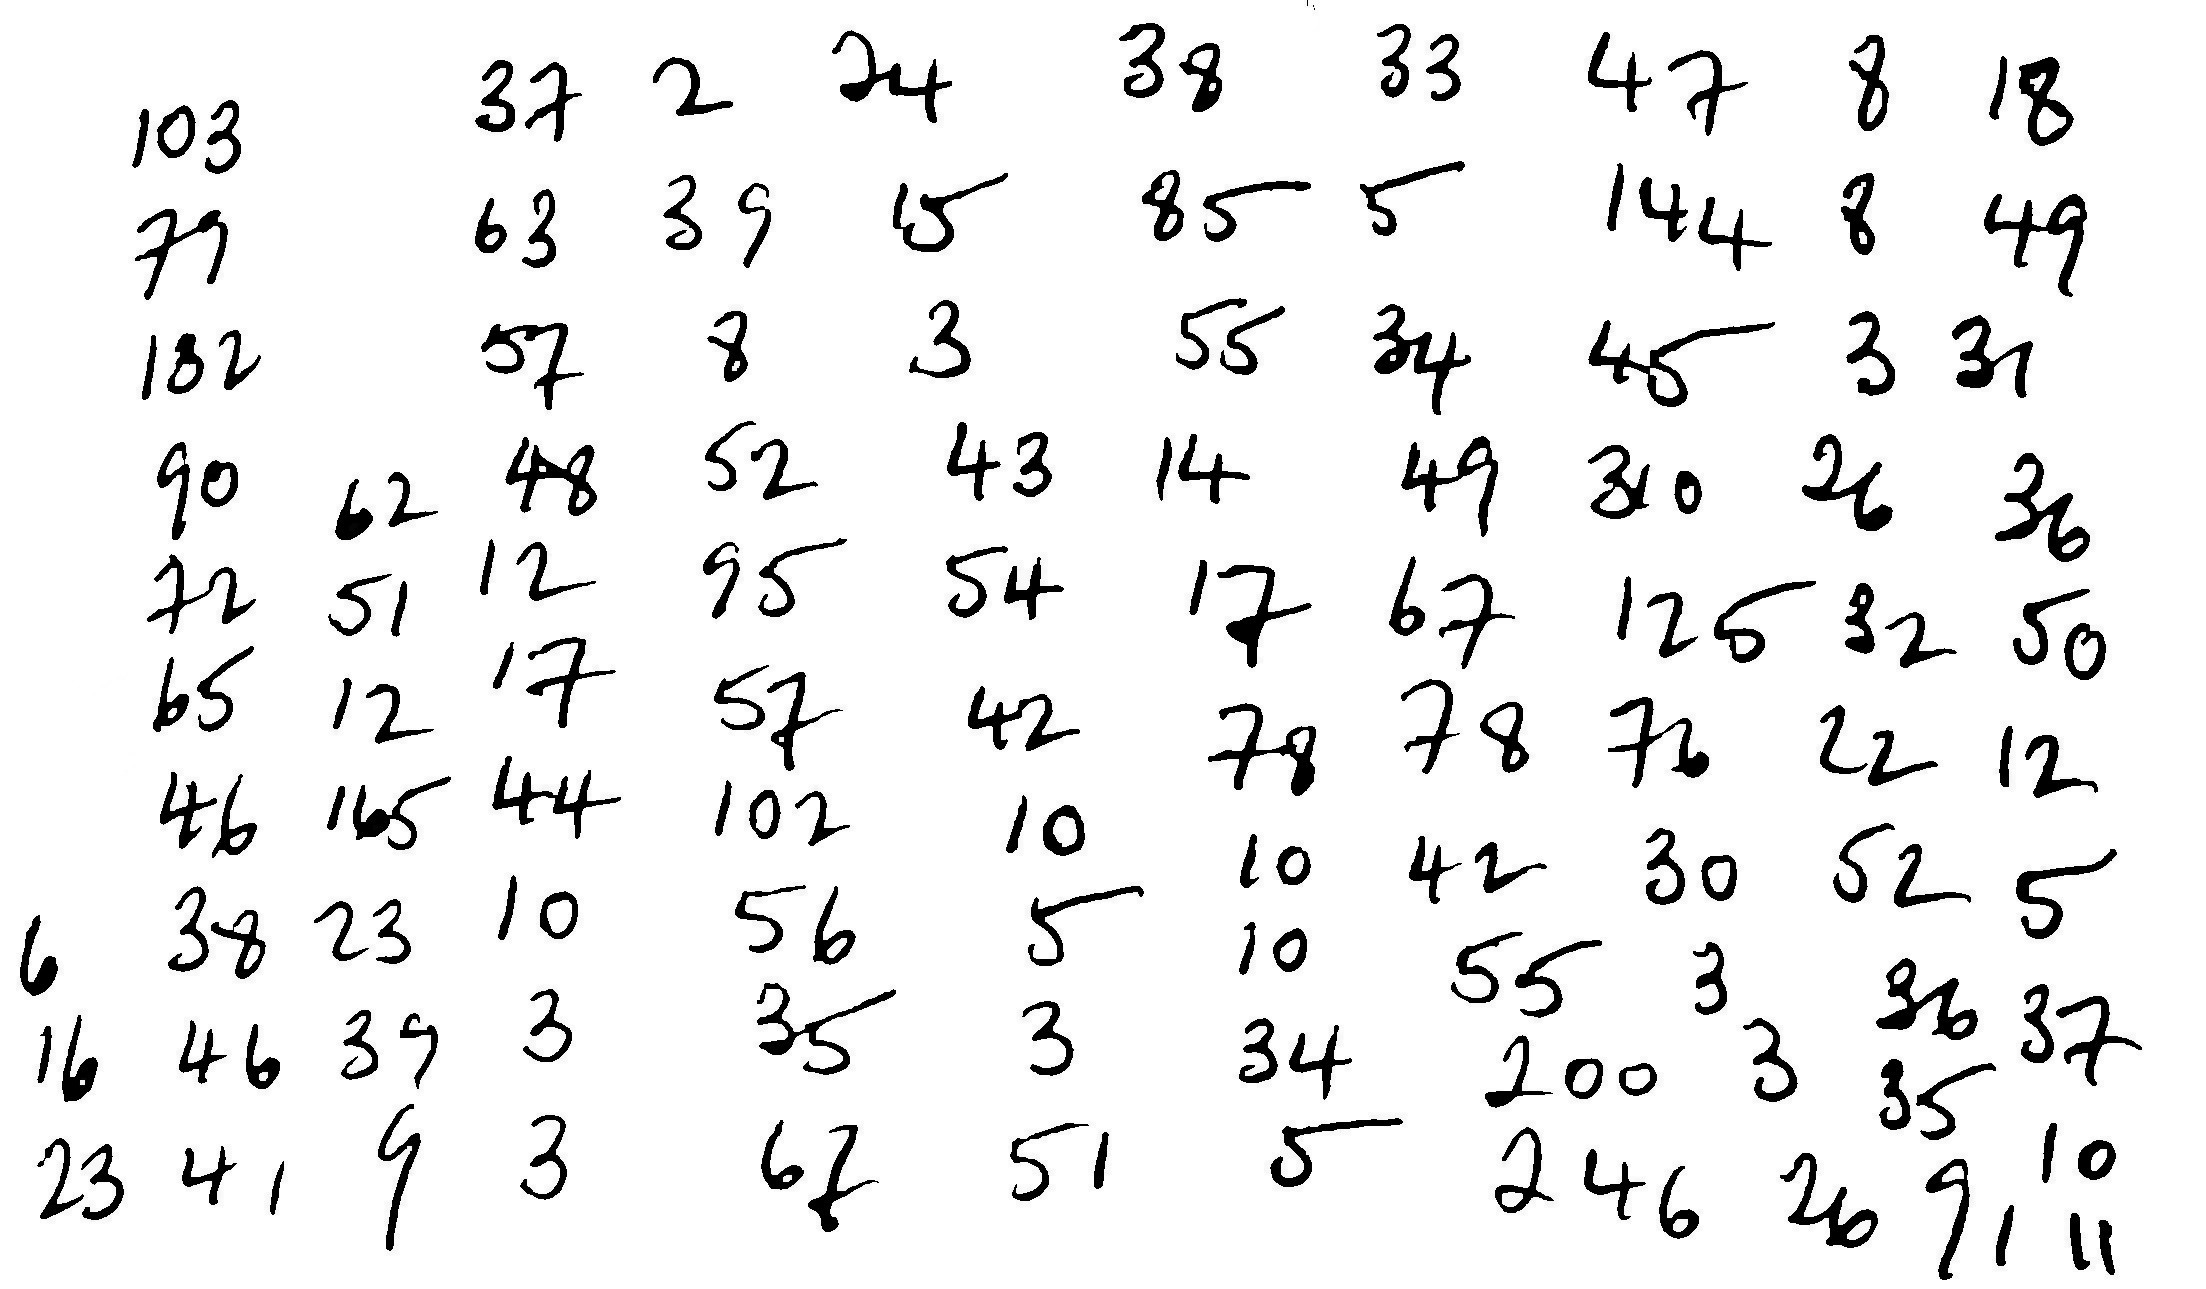 103 37 2 24 38 33 47 8 18
79 63 39 15 85 5 144 8 49
182 57 8 3 55 34 45 3 31
90 62 48 52 43 14 49 310 26 36
72 51 12 95 54 17 67 125 32 50
65 12 17 57 42 78 78 76 22 12
46 165 44 102 10 10 42 30 52 5
6 38 23 10 56 5 10 55 3 36 37
16 46 39 3 35 3 34 200 3 35 10
23 41 9 3 67 51 5 246 26 91 11